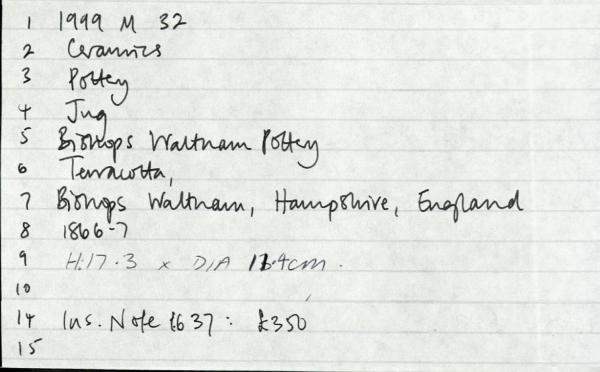 1 1999 M 32
2 Ceramics
3 Pottery
4 Jug
5 Bishops Waltham Pottery
6 Terracotta,
7 Bishops Waltham, Hampshire, England
8 1866-7
9 H:17.3 x DIA cm.
10
14 Ins. Note 1637: £350
15